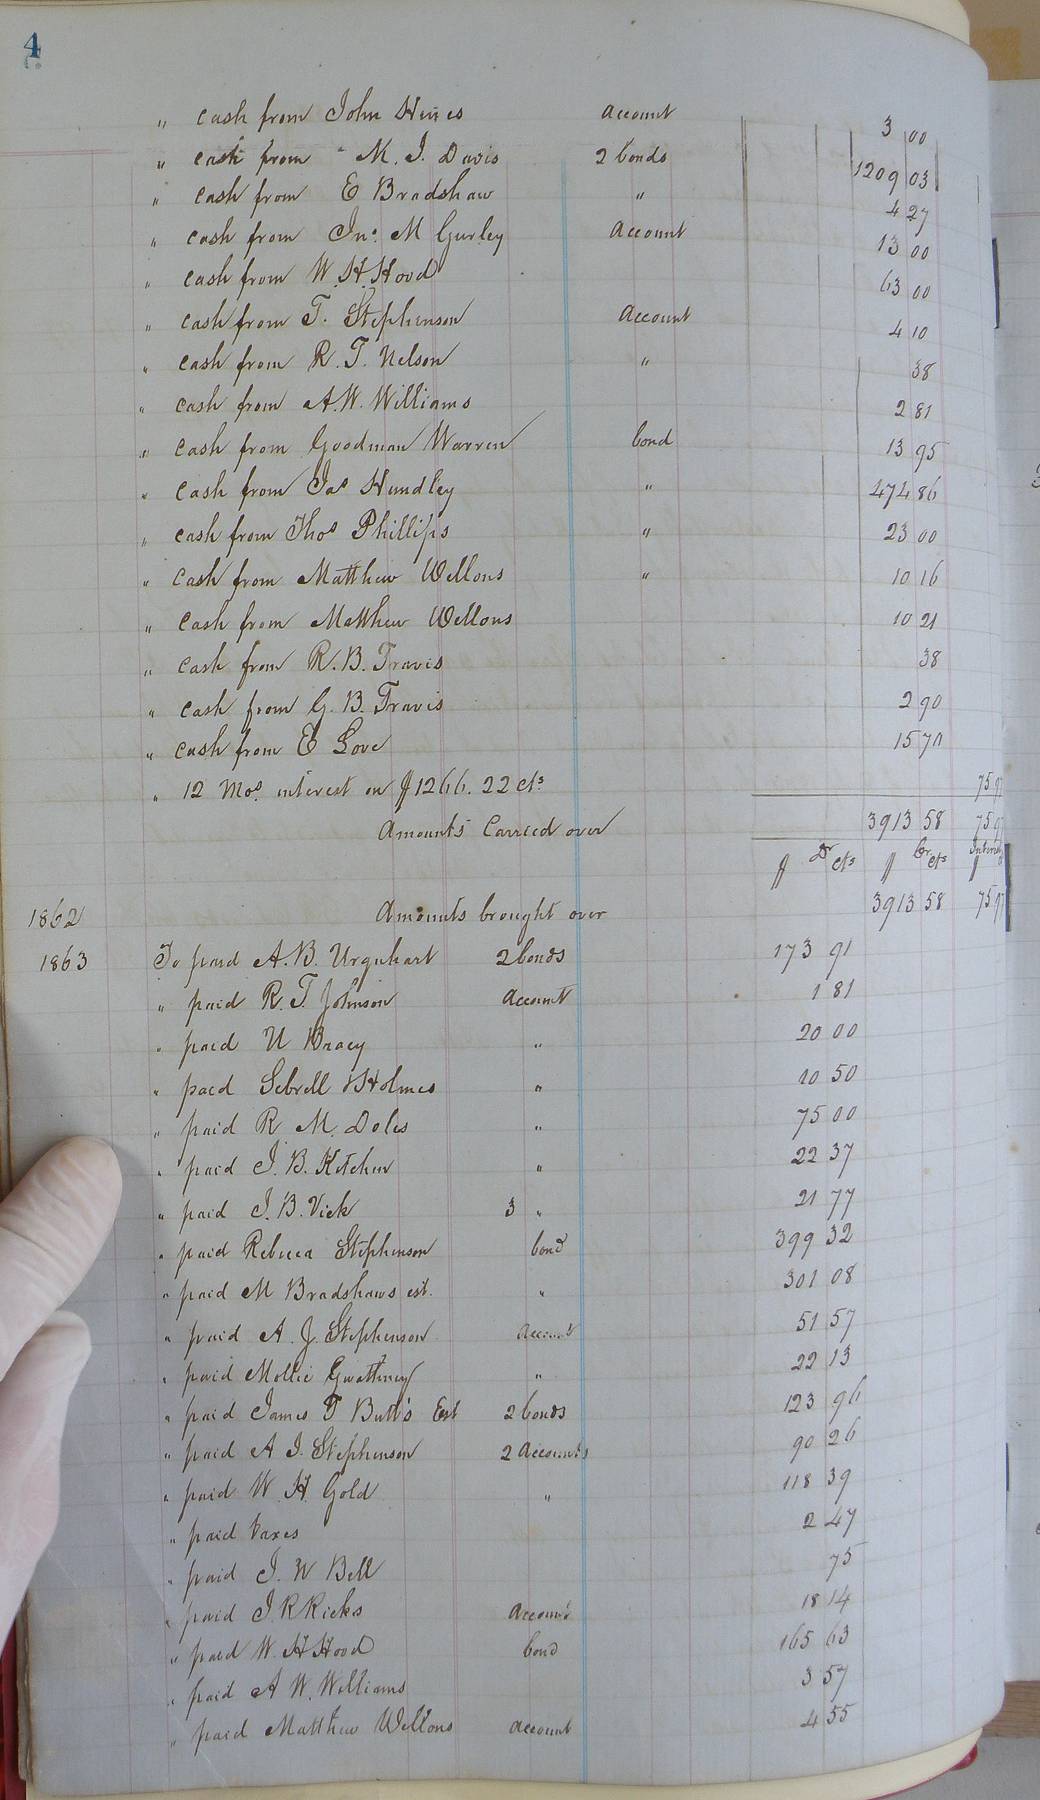 4
" cash from John Hines account 3 00
" cash from M. J. Davis 2 bonds 1209 03
" cash from E Bradshaw " 4 27
" cash from Jno. M Gurley account 13 00
" cash from W. H. Hood 63 00
" cash from T. Stephenson account 4 10
" cash from R. T. Nelson " 38
" cash from A. W. Williams 2 81
" cash from Goodman Warren bond 13 95
" cash from Jas Hundley " 474 86
" cash from Thos Phillips " 23 00
" cash from Matthew Wellons " 10 16
" cash from Matthew Wellons 10 21
" cash from R. B. Travis 38
" cash from G. B. Travis 2 90
" cash from E Love 15 70
" 12 Mos. interest on $1266. 22 cts 75 97
Amounts Carried over 3913 58 75 97
$ Dr cts $ Cr cts $
1862 Amounts brought over 3913 58 75 97
1863 To paid A. B. Urquhart 2 bonds 173 91
" paid R. T. Johnson account 1 81
" paid U Bracy " 20 00
" paid Sebrell & Holmes " 10 50
" paid R M. Doles " 75 00
" paid J. B. Kitchen " 22 37
" paid J. B. Vick 3 " 21 77
" paid Rebecca Stephenson bond 399 32
" paid M Bradshaws est. " 301 08
" paid A. J. Stephenson account 51 57
" paid Mollie Gwathney " 22 13
" paid James T Butt's Est 2 bonds 123 96
" paid A J. Stephenson 2 accounts 90 26
" paid W. H. Gold " 118 39
" paid taxes 2 47
" paid J. W Bell 75
" paid J. R Ricks account 18 14
" paid W. H Hood bond 165 63
" paid A W. Williams 3 57
" paid Matthew Wellons account 4 55